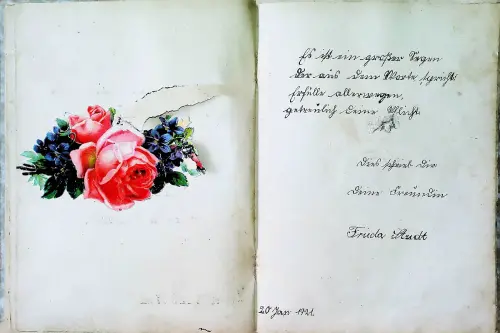 Es ist ein großer Segen
der aus dem Worte spricht:
Erfülle allerwegen,
getreulich deine Pflicht.
Dies schrieb Dir
Deine Freundin
Frieda Arndt
20 Jan 1921.